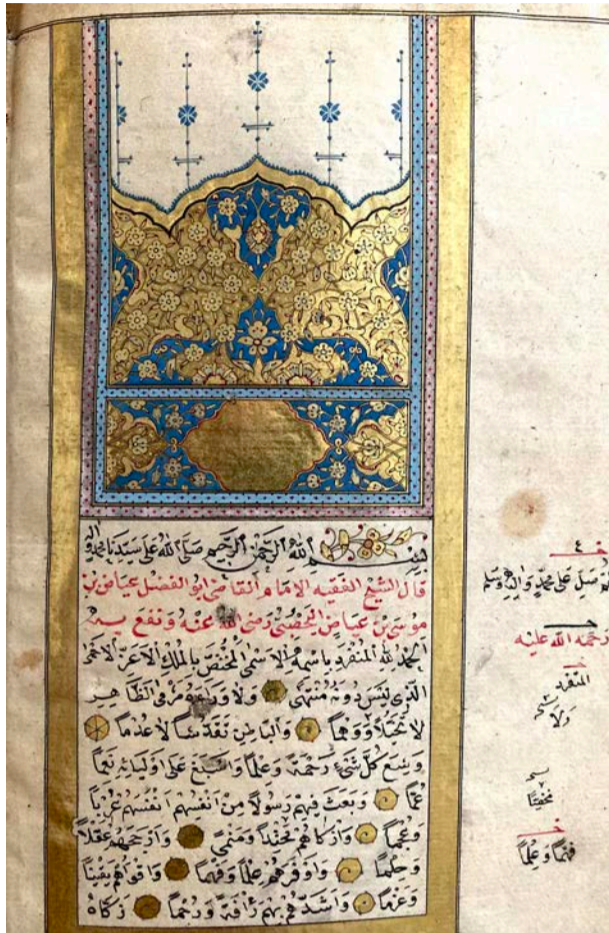 بِسْمِ اللّٰهِ الرَّحْمٰنِ الرَّحِيمِ صَلَّى اللّٰهُ عَلَى سَيِّدِنَا مُحَمَّدٍ وَاٰلِهِ
قَالَ الشَّيْخُ الْفَقِيهُ الْاِمَامُ الْقَاضِى اَبُو الْفَضْلِ عِيَاضُ بْنُ
مُوسَى بْنِ عِيَاضٍ الْيَحْصُبِىُّ رَضِىَ اللّٰهُ عَنْهُ وَنَفَعَ بِهِ
اَلْحَمْدُ لِلّٰهِ الْمُنْفَرِدِ بِاسْمِهِ الْاَسْمَى الْمُخْتَصِّ بِالْمُلْكِ الْاَعَزِّ الْاَحْمَى
الَّذِى لَيْسَ دُونَهُ مُنْتَهًى وَلَا وَرَاءَهُ مَرْمًى الظَّاهِرِ
لَا تَخَيُّلًا وَوَهْمًا وَالْبَاطِنِ تَقَدُّسًا لَا عُدْمًا
وَسِعَ كُلَّ شَىْءٍ رَحْمَةً وَعِلْمًا وَاَسْبَغَ عَلَى اَوْلِيَائِهِ نِعَمًا
عُمًّا وَبَعَثَ فِيهِمْ رَسُولًا مِنْ اَنْفُسِهِمْ اَنْفَسَهُمْ عُرْبًا
وَعُجْمًا وَاَزْكَاهُمْ مَحْتِدًا وَمَنْمًى وَاَرْجَحَهُمْ عَقْلًا
وَحِلْمًا وَاَوْفَرَهُمْ عِلْمًا وَفَهْمًا وَاَقْوَاهُمْ يَقِينًا
وَعَزْمًا وَاَشَدَّهُمْ بِهِمْ رَأْفَةً وَرُحْمًا زَكَّاهُ
صَلِّ عَلَى مُحَمَّدٍ وَاٰلِهِ وَسَلِّمْ
رَحْمَةُ اللّٰهِ عَلَيْهِ
الْمُنْفَرِدِ
وَلَا
فَهْمًا وَعِلْمًا